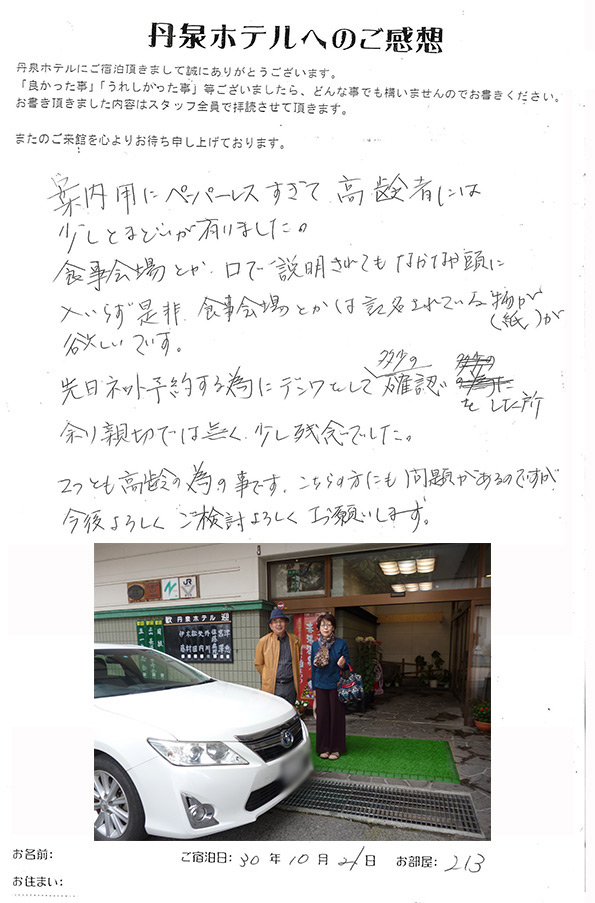 丹泉ホテルへのご感想
丹泉ホテルにご宿泊頂きまして誠にありがとうございます。
「良かった事」「うれしかった事」等ございましたら、どんな事でも構いませんのでお書きください。
お書き頂きました内容はスタッフ全員で拝読させて頂きます。
またのご来館を心よりお待ち申し上げております。
案内用にペーパーレスすぎて高齢者には
少しとまどいが有りました。
食事会場とか、口で説明されてもなかなか頭に
入いらず是非、食事会場とかは記名されている物が
(紙)が
欲しいです。
先日ネット予約する為にデンワをして多少の確認
をした所
余り親切では無く、少し残念でした。
2つとも高齢の為の事です。こちらの方にも問題があるのですが
今後よろしくご検討よろしくお願いします。
歓 丹泉ホテル 迎
JR
お名前:
ご宿泊日: 30 年 10 月 21 日
お部屋: 213
お住まい: